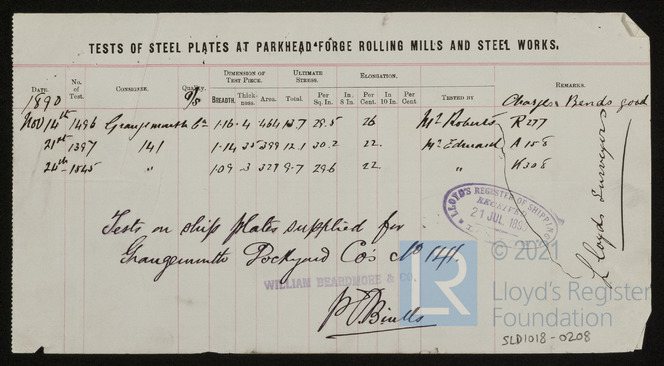 TESTS OF STEEL PLATES AT PARKHEAD FORGE ROLLING MILLS AND STEEL WORKS.
DATE. No. of Test. CONSIGNEE. Quality. DIMENSION OF TEST PIECE. ULTIMATE STRESS. ELONGATION. TESTED BY REMARKS.
BREADTH. Thickness. AREA. Total. Per Sq. In. In. 8 In. Per Cent. In 10 In. Per Cent
1890 Charges Bends good
Nov 14th 1496 Grangemouth Co 1.16 .4 .464 13.7 29.5 26 Mr Roberts R 277
21st 1397 141 1.14 .35 .399 12.1 30.2 22. Mr Edward A 158
24th 1545 " 1.09 .3 .327 9.7 29.6 22. " K 308
Lloyds Surveyors
Tests on ship plates supplied for
Grangemouth Dockyard Co's No 141.
WILLIAM BEARDMORE & CO.
LLOYD'S REGISTER OF SHIPPING
RECEIVED
21 JUL
LR
© 2021
Lloyd's Register
Foundation
SLD1018-0208